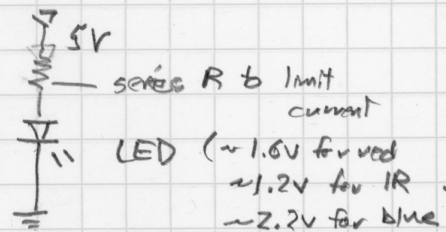 5V
series R to limit
current
LED (~1.6V for red
~1.2V for IR
~2.2V for blue